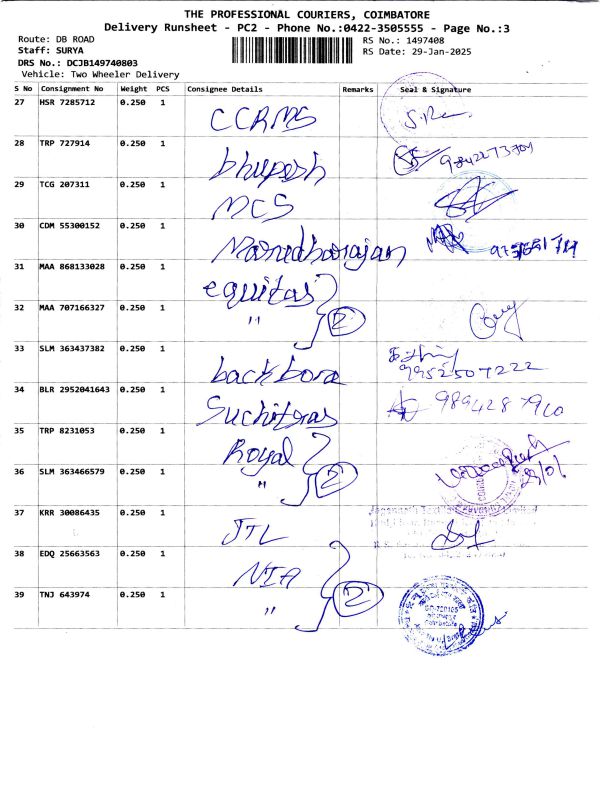 THE PROFESSIONAL COURIERS, COIMBATORE
Delivery Runsheet - PC2 - Phone No.:0422-3505555 - Page No.:3
Route: DB ROAD
RS No.: 1497408
Staff: SURYA
RS Date: 29-Jan-2025
DRS No.: DCJB149740803
Vehicle: Two Wheeler Delivery
S No Consignment No Weight PCS Consignee Details Remarks Seal & Signature
27 HSR 7285712 0.250 1 CCRMS
28 TRP 727914 0.250 1 bhupesh
29 TCG 207311 0.250 1 MCS
30 CDM 55300152 0.250 1
31 MAA 868133028 0.250 1 equitas
32 MAA 707166327 0.250 1 " 2
33 SLM 363437382 0.250 1 9952507222
34 BLR 2952041643 0.250 1
35 TRP 8231053 0.250 1 Royal
36 SLM 363466579 0.250 1 " 2
37 KRR 30086435 0.250 1 JTL
38 EDQ 25663563 0.250 1 NIA
39 TNJ 643974 0.250 1 " 2